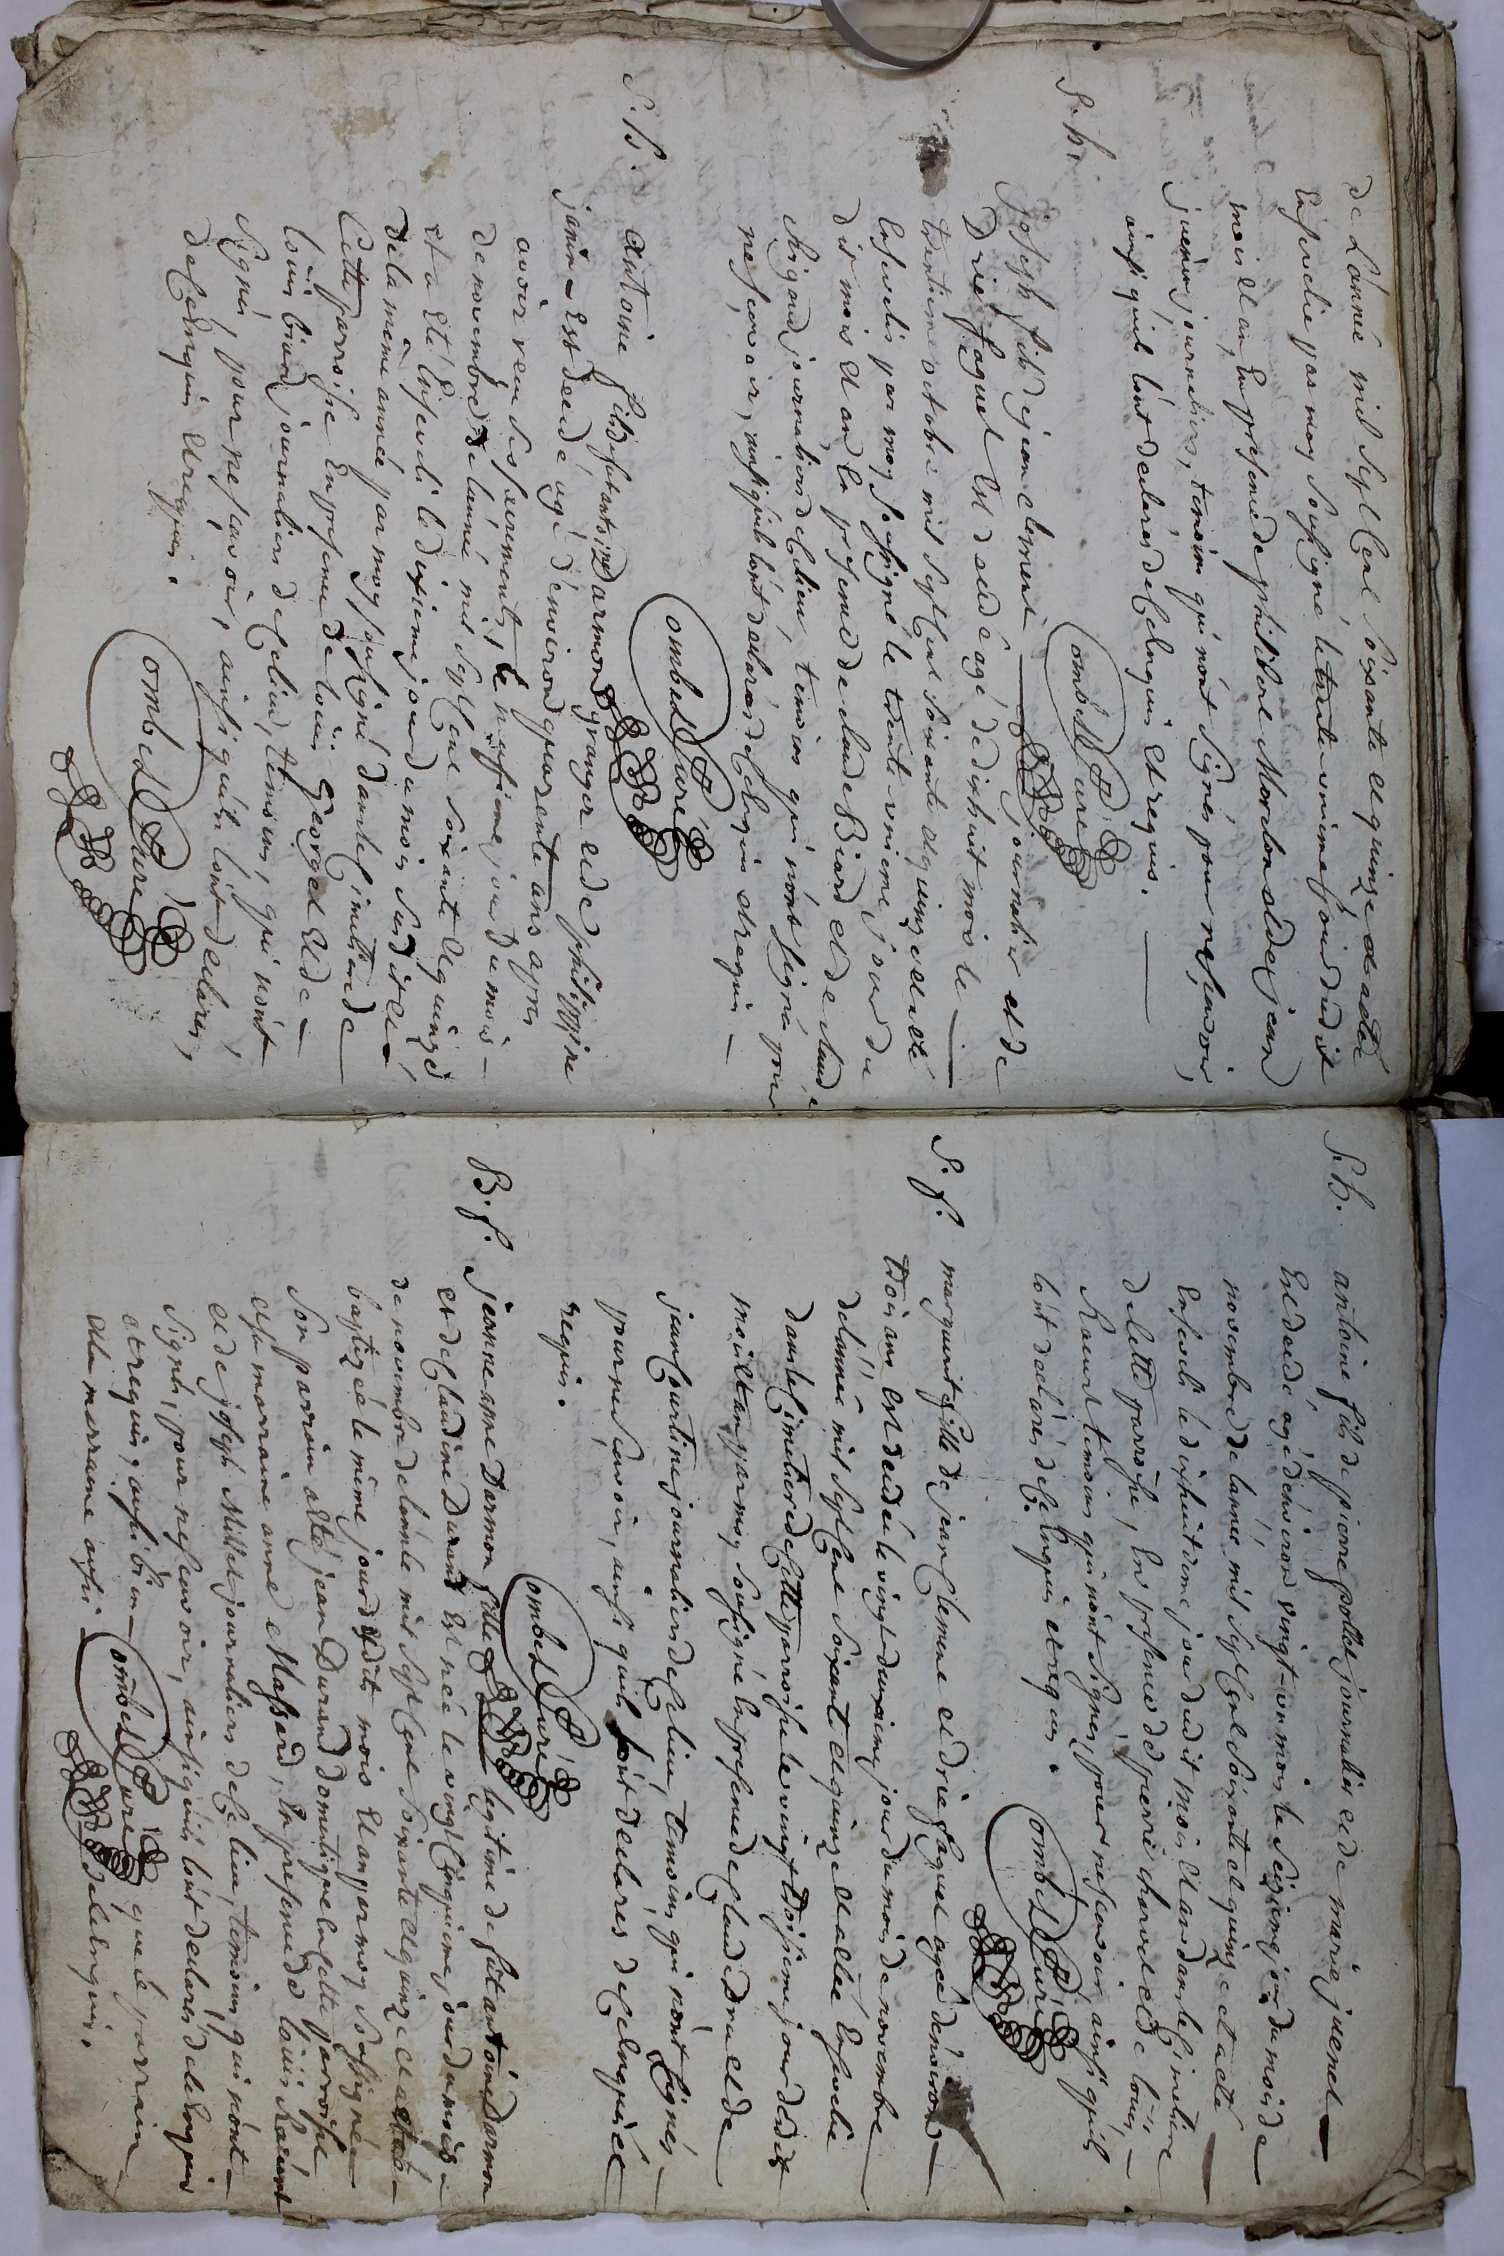 de L'année mil sept Cent soixante et quinze et a été
Ensevelie par moy soussigné le trente unieme jour dudit
mois et an, En presence de philibert Morelon et de jean
juenin journaliers, temoins qui n'ont signés pour ne scavoir,
ainsi quils l'ont declarés de Ce Enquis et requis.
ombest Curé
S. h.
joseph fils de jean clement journalier et de
Drie faguet Est decedé agé de dixhuit mois le
trentieme octobre mil sept Cent soixante et quinze et a été
Enseveli par moy soussigné le trente unieme jour du
dit mois et an En presence de claude Biard et de claude
Rigaud journaliers de Ce lieu, temoins qui n'ont signé pour
ne scavoir, ainsi quils l'ont declarés de Ce Enquis et requis
ombest Curé
S. h.
Antoine fils de fut antoine Darmon granger et de philippine
janin Est decedé agé d'environ quarente ans apres
avoir reçu ses sacrements, le neufieme jour du mois
de novembre de l'année mil sept Cent soixante et quinze
et a été Enseveli le dixieme jour du mois susdit et
de la même année par moy soussigné dans le Cimetiere de
Cette parroisse En presence de louis george et de
louis biard journaliers de Ce lieu, temoins, qui n'ont
signés, pour ne scavoir, ainsi quils l'ont declarés,
de Ce Enquis et requis.
ombest Curé
S. h.
antoine fils de pierre pollet journalier et de marie juenet
Est decedé agé d'environ vingt-un mois le seizieme jour du mois de
novembre de l'année mil sept Cent soixante et quinze et a été
Enseveli le dixhuitieme jour dudit mois et an dans le Cimetiere
de Cette parroisse, En presence de pierre charvet et de louis
Racurt temoins qui n'ont signés, pour ne scavoir ainsi quils
l'ont declarés de Ce Enquis et requis.
ombest Curé
S. f.
marguerite fille de jean Clement et drie faguet agée d'environ
trois ans est decedée le vingt-deuxieme jour du mois de novembre
de l'année mil sept Cent soixante et quinze et a été Ensevelie
dans le Cimetiere de Cette parroisse le vingt troisieme jour dudit
mois et an par moy soussigné En presence de Claude Drue et de
jean Courtine journaliers de Ce lieu, temoins qui n'ont signés
pour ne scavoir, ainsi quils l'ont declarés de Ce Enquis et
requis.
ombest Curé
B. f.
jeanne anne Darmon fille legitime de fut antoine Darmon
et de Claudine Durand Est née le vingt Cinquieme jour du mois
de novembre de l'année mil sept Cent soixante et quinze et a été
baptizée le même jour desdits mois et an par moy soussigné
son parrain a été jean Durand domestique En Cette parroisse
et sa marraine anne Massard, En presence de louis Racurt
et de joseph Millet journaliers de Ce lieu, temoins qui n'ont
signés, pour ne scavoir, ainsi quils l'ont declarés de Ce Enquis
et requis, aussi bien que le parrain
et la marraine aussi de Ce Enquis.
ombest Curé